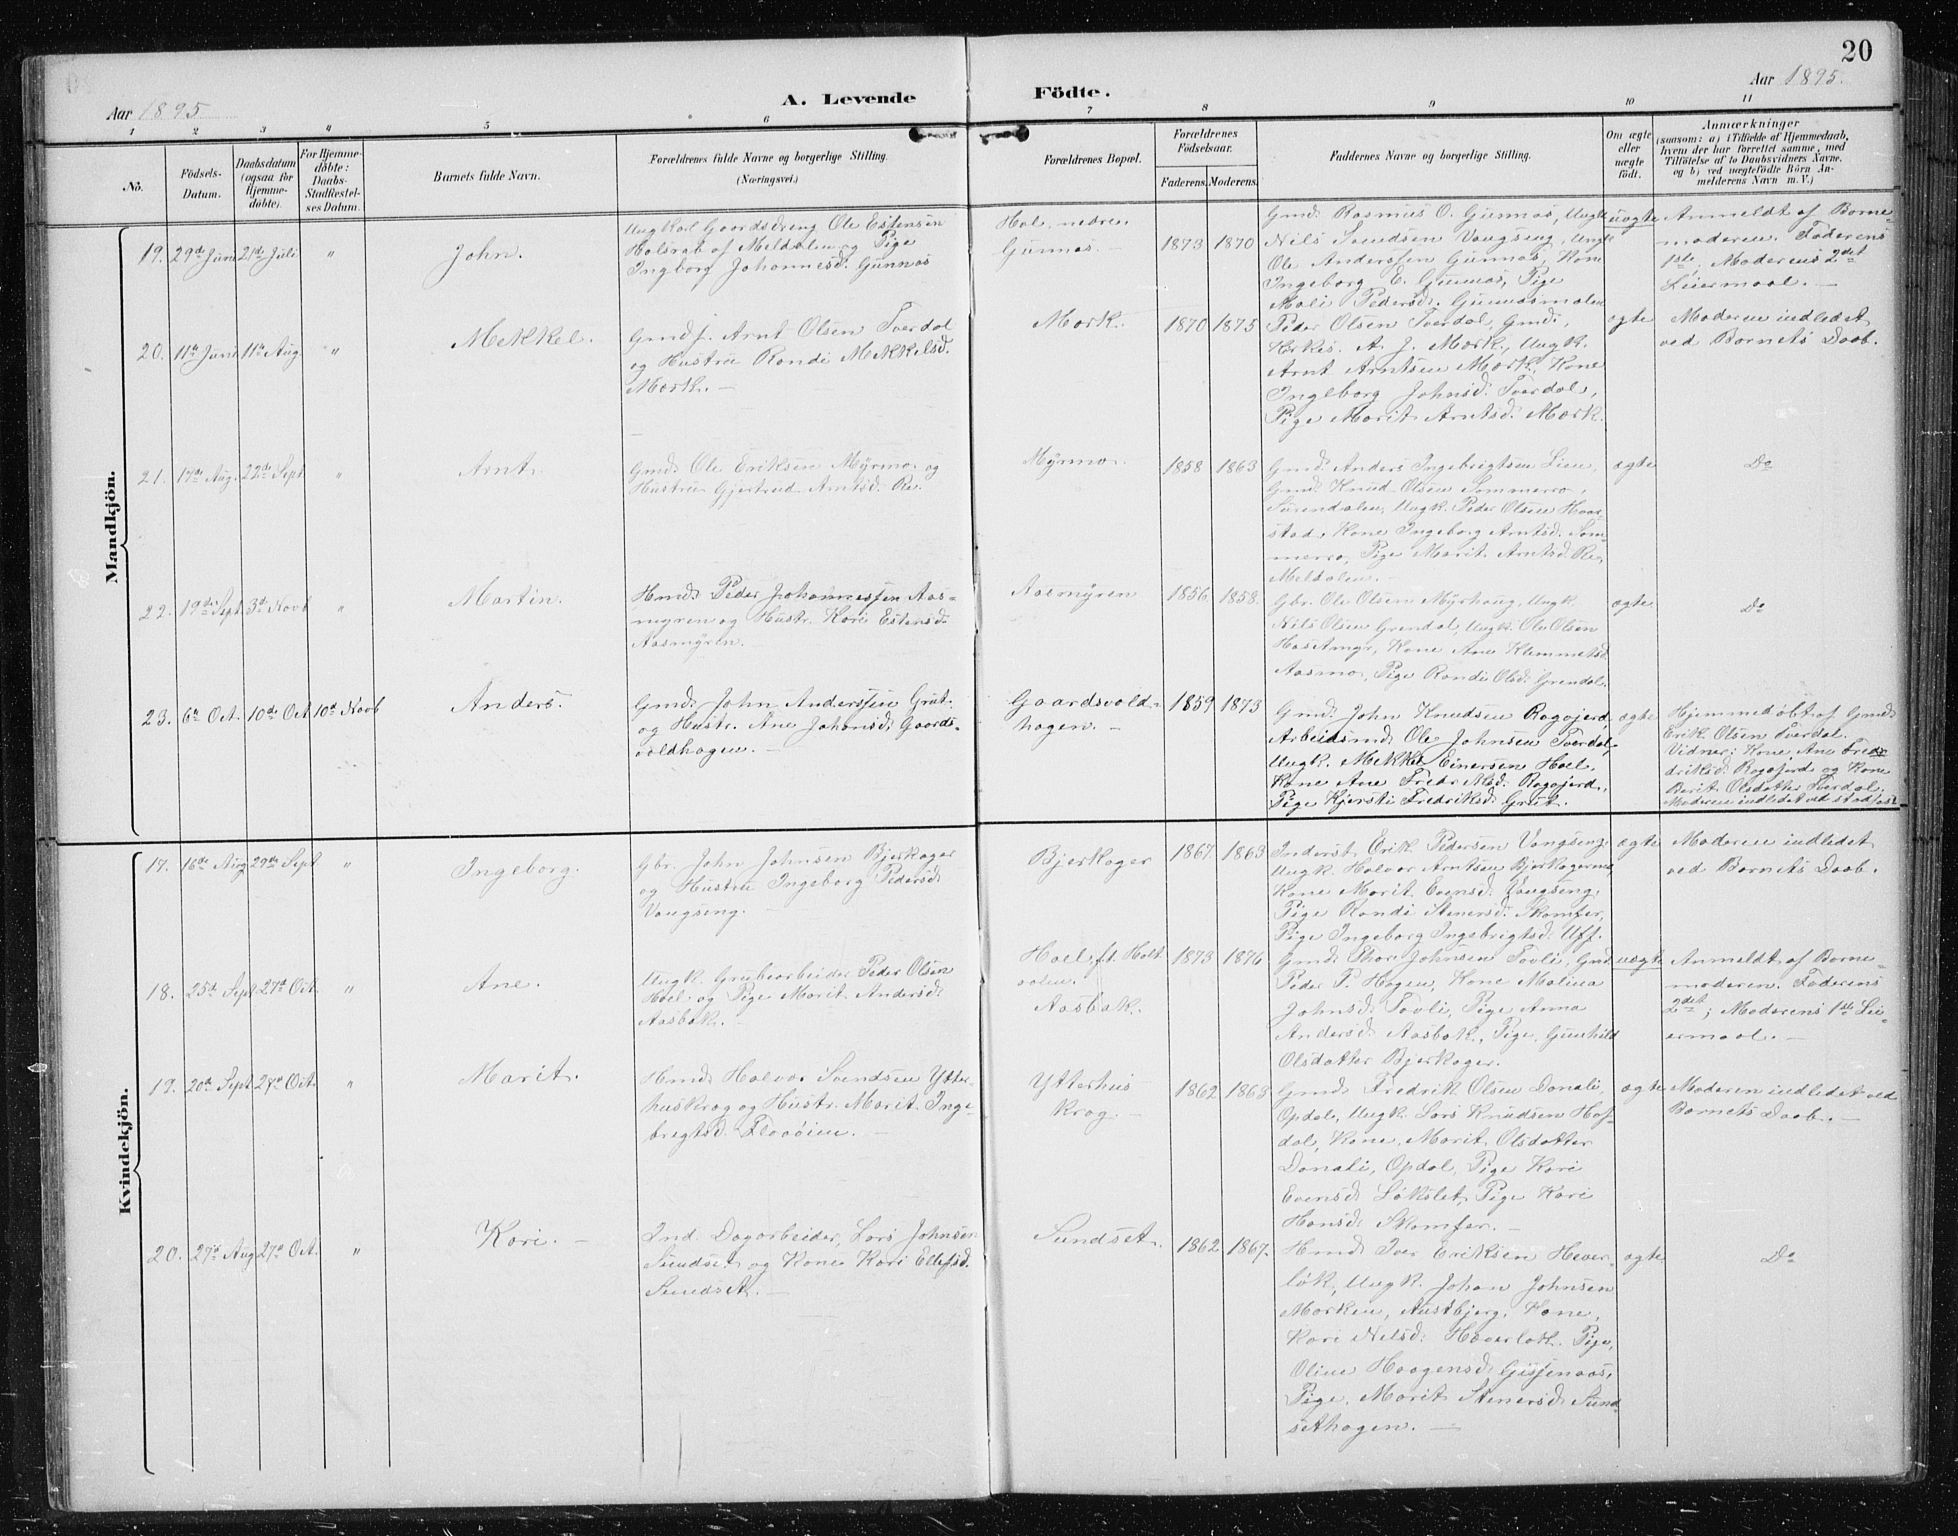 20
Aar 1895.
A. Levende Födte.
Aar 1895.
1 2 3 4 5 6 7 8 9 10 11
No.
Födsels-
Datum.
Daabsdatum
(ogsaa for
Hjemme-
döbte).
For Hjemme-
döbte:
Daabs-
Stadfæstel-
ses Datum.
Barnets fulde Navn.
Forældrenes fulde Navne og borgerlige Stilling.
(Næringsvei.)
Forældrenes Bopæl.
Forældrenes
Födselsaar.
Faderens. Moderens.
Faddernes Navne og borgerlige Stilling.
Om ægte
eller
uægte
födt.
Anmærkninger
(saasom: a) i Tilfælde af Hjemmedaab,
hvem der har forrettet samme, med
Tilföielse af to Daabsvidners Navne.
og b) ved uægtefödte Börn An-
melderens Navn m. V.)
Mandkjön.
19. 29de Juni 21de Juli " John.
Ungkarl Gaardsdreng Ole Estensen
Holsrab af Meldalen og Pige
Ingborg Johannesd. Gunnas
Hol nedre.
Gunnas.
1873 1870
Gmd. Rasmus O. Gunnas, Ungk.
Nils Svendsen Vangseng, Ungk.
Ole Anderssen Gunnas, Kone
Ingeborg E. Gunnas, Pige
Mali Pedersd. Gunnasmalen
uægte
Anmeldt af Barne-
moderen. Faderens
1ste, Moderens 2det
Leiermaal. —
20. 11te Juni 11te Aug. " Mekkel.
Gmdf. Arnt Olsen Tverdal
og Hustru Randi Mekkelsd.
Mærk. —
Mærk.
1870 1875
Peder Olsen Tverdal, Gmd.,
Kirkes. A. J. Mærk, Ungk.
Arnt Arntsen Mærk, Kone
Ingeborg Johnsd. Tverdal,
Pige Marit Arntsd. Mærk.
ægte
Moderen indledet
ved Barnets Daab.
21. 17de Aug. 22de Sept. " Arnt.
Gmd. Ole Eriksen Myrmo og
Hustru Gjertrud Arntsd. Re.
Myrmo.
1858 1863
Gmd. Anders Ingebrigtsen Lien,
Gmd. Knud Olsen Sommerro,
Surendalen, Ungk. Peder Olsen Haar-
stad, Kone Ingeborg Arntsd. Som-
merro, Pige Marit Arntsd. Re,
Meldalen. —
ægte
Do
22. 19de Sept. 3de Novb " Martin.
Hmd. Peder Johannessen Aas-
myren og Hustr. Kari Estensd.
Aasmyren.
Aasmyren
1856 1858.
Gbr. Ole Olsen Myrhaug, Ungk.
Nils Olsen Grendal, Ungk. Ole Olsen
Hosetmyr, Kone Ane Klemmetsd.
Aasmo, Pige Randi Olsd. Grendal.
ægte
Do
23. 6te Oct. 10de Oct. 10de Novb Anders.
Gmd. John Anderssen Grut.
og Hustr. Ane Johansd. Gaards-
voldhagen. —
Gaardsvold-
hagen. —
1859 1873
Gmd. John Knudsen Ragojerd,
Arbeidsmd. Ole Johnsen Tverdal,
Ungk. Mekkel Einersen Hoel,
Kone Ane Fredriksd. Ragojerd,
Pige Kjersti Fredriksd. Grut.
ægte
Hjemmedöbt af Gmd.
Erik Olsen Tverdal.
Vidner: Kone Ane Fre-
driksd. Ragojerd og Kone
Berit Olsdatter Tverdal.
Moderen indledet ved stadfæst.
Kvindekjön.
17. 16de Aug 29de Sept " Ingeborg.
Gbr. John Johnsen Bjerkager
og Hustru Ingeborg Pedersd.
Vangseng. —
Bjerkager
1867. 1863
Inderst Erik Pedersen Vangseng,
Ungk. Halvor Arntsen Bjerkagermo,
Kone Marit Evensd. Vangseng,
Pige Randi Stenersd. Skamfer,
Pige Ingeborg Ingebrigtsd. Uff.
ægte
Moderen indledet
ved Barnets Daab.
18. 25de Sept 27de Oct. " Ane.
Ungk. Grubearbeider Peder Olsen
Hoel og Pige Marit Andersd.
Aasbak. —
Hoel, ft. Holt-
aalen.
Aasbak.
1873 1876
Gmd. Thore Johnsen Tovli, Gmd.
Peder P. Hagen, Kone Malena
Johnsd. Tovli, Pige Anna
Andersd. Aasbak, Pige Gunhild
Olsdatter Bjerkager.
uægte
Anmeldt af Barne-
moderen. Faderens
2det; Moderens 1ste Lei-
ermaal. —
19. 20de Sept 27de Oct. " Marit.
Hmd. Halvor Svendsen Ytter-
huskrag og Hustr. Marit Inge-
brigtsd. Flaaöien. —
Ytterhus
krag. —
1862 1863
Gmd. Fredrik Olsen Donali,
Opdal, Ungk. Lars Knudsen Haf-
dal, Kone Marit Olsdatter
Donali, Opdal, Pige Kari
Evensd. Lökslet, Pige Kari
Hansd. Skamfer. —
ægte
Moderen indledet ved
Barnets Daab. —
20. 27de Aug 27de Oct. " Kari. —
Ind. Dagarbeider, Lars Johnsen
Sundset og Kone Kari Ellefsd.
Sundset. —
Sundset.
1862 1867.
Hmd. Iver Eriksen Hever-
lök, Ungk. Johan Johnsen
Marken, Austbjerg, Kone,
Kari Nilsd. Haverlök, Pige,
Oline Haagensd. Gisjenaas,
Pige Marit Stenersd. Sund-
sethagen. —
ægte
Do